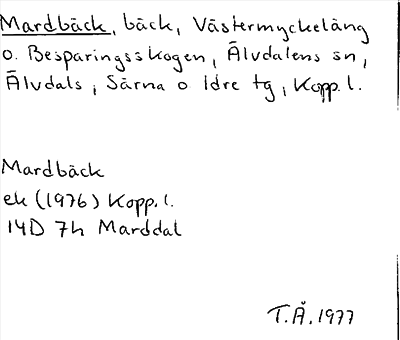 Mardbäck, bäck, Västermyckeläng
o. Besparingsskogen, Älvdalens sn,
Älvdals, Särna o Idre tg, Kopp. l.
Mardbäck
ek (1976) Kopp. l.
14D 7h Marddal
T.Å. 1977